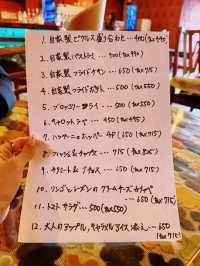 1. 自家製ピクルス盛り合わせ…400(tax440)
2. 自家製 パストラミ … 400(tax440)
3. 自家製 フライドチキン … 650(tax715)
4. 自家製 フライドポテト … 500(tax550)
5. ブロッコリー … 500(tax550)
6. キャロットラペ … 450(tax495)
7. ハラペーニョポッパー 4P (650)(tax715)
8. フィッシュ&チップス … 715(tax)
9. タラミート & … 650(tax715)
10. リンゴとレーズンのクリームチーズカナッペ
… 650(tax715)
11. トマト サラダ … 500(tax550)
12. 大人のアッフル、キャラメルアイス添え … 650
(tax715)